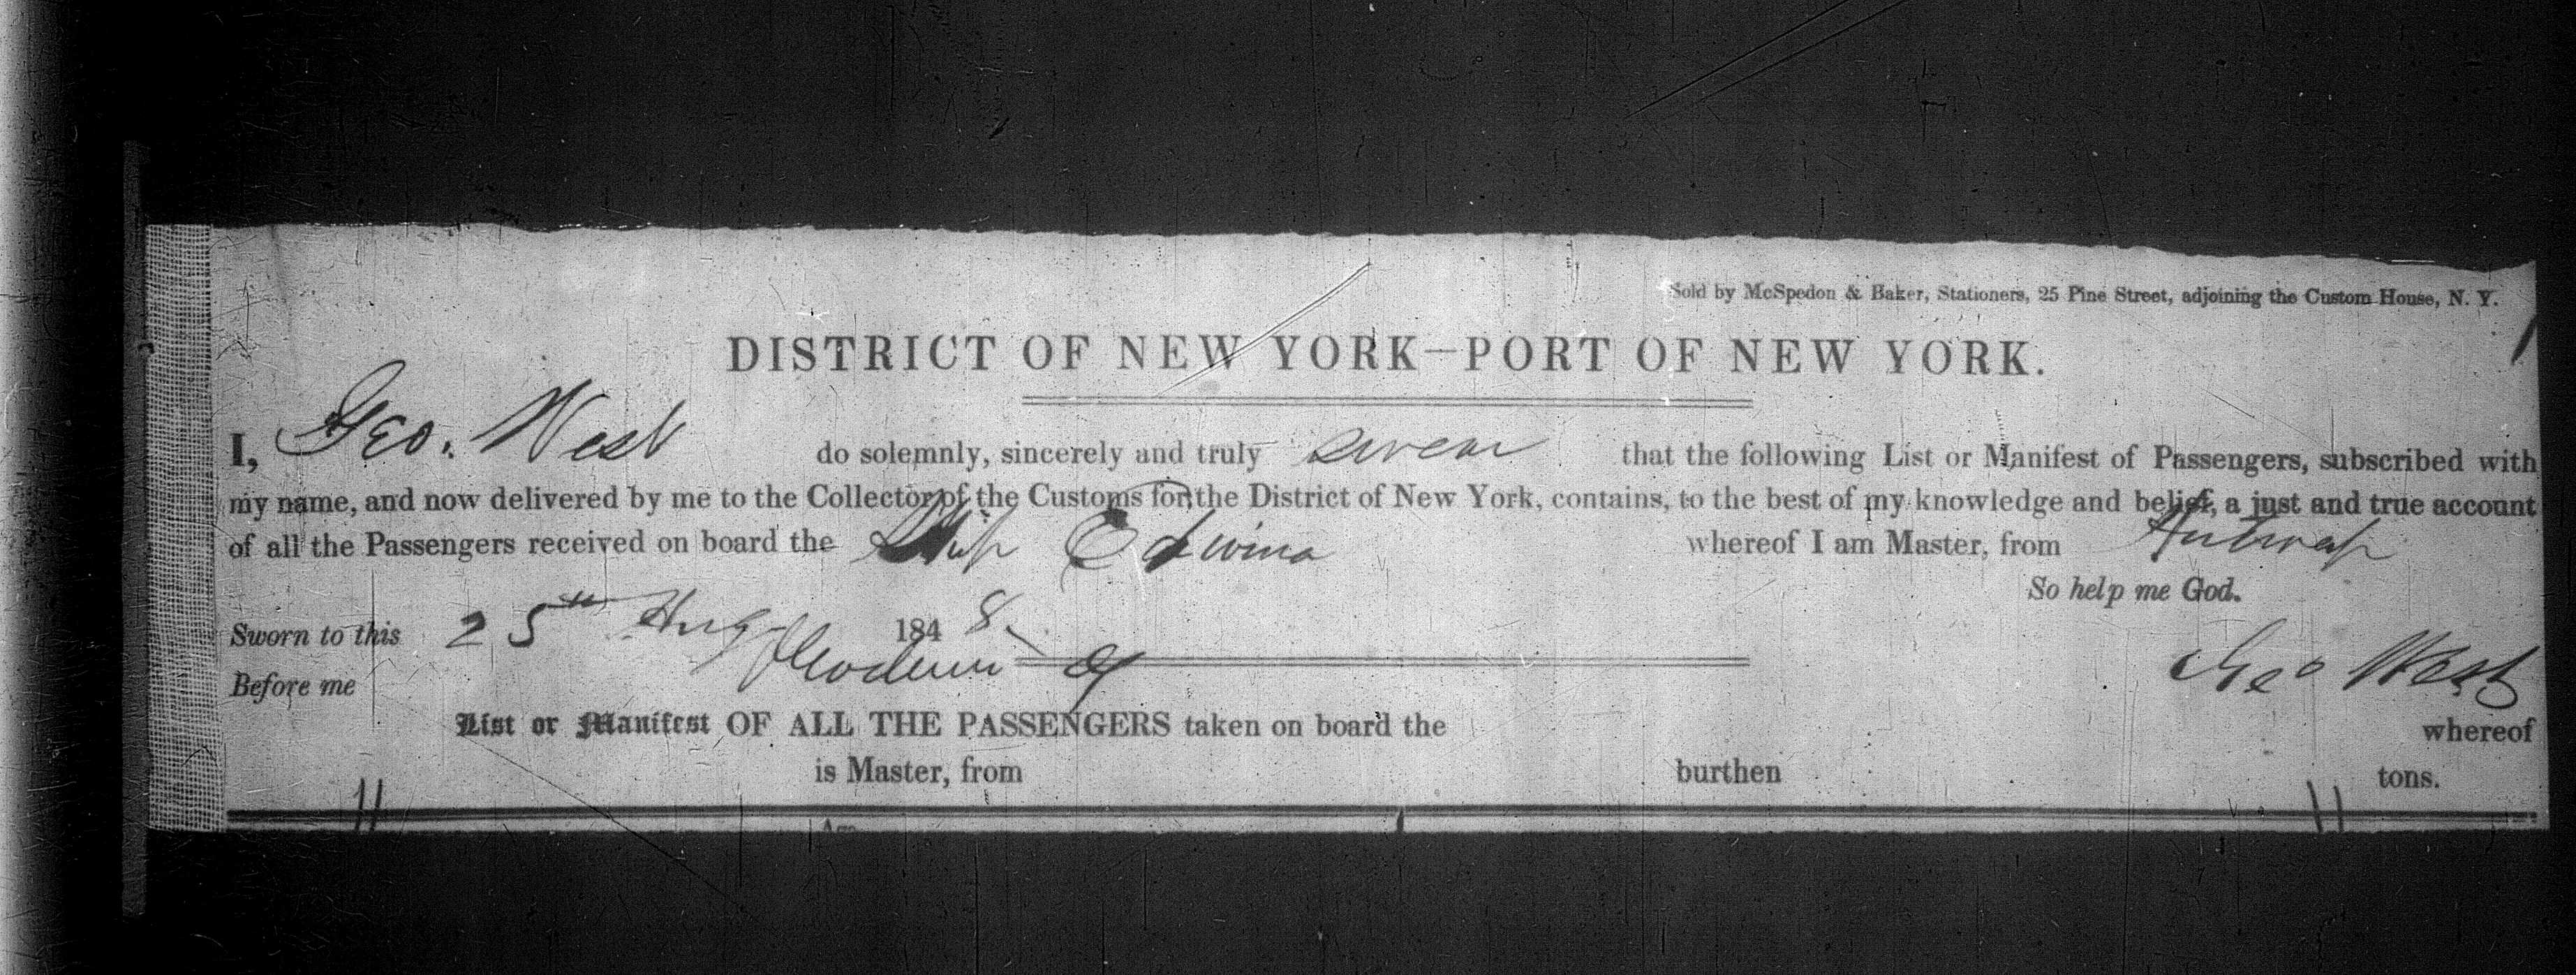 Sold by McSpedon & Baker, Stationers, 25 Pine Street, adjoining the Custom House, N. Y.
DISTRICT OF NEW YORK—PORT OF NEW YORK.
I, Geo. West do solemnly, sincerely and truly swear that the following List or Manifest of Passengers, subscribed with
my name, and now delivered by me to the Collector of the Customs for the District of New York, contains, to the best of my knowledge and belief, a just and true account
of all the Passengers received on board the Ship Edwina whereof I am Master, from Antwerp
So help me God.
Sworn to this 25th Aug 1848
Before me
Geo West
List or Manifest OF ALL THE PASSENGERS taken on board the whereof
is Master, from burthen tons.